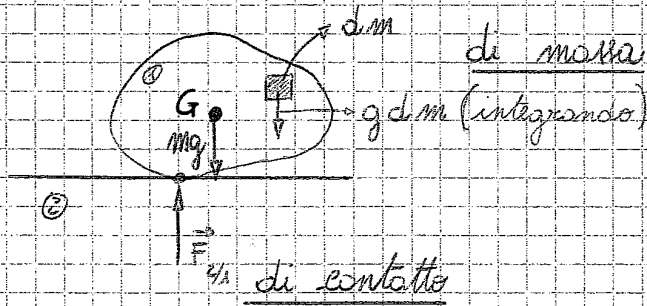 dm
di massa
①
G
g dm (integrando)
mg
②
F 2/1
di contatto